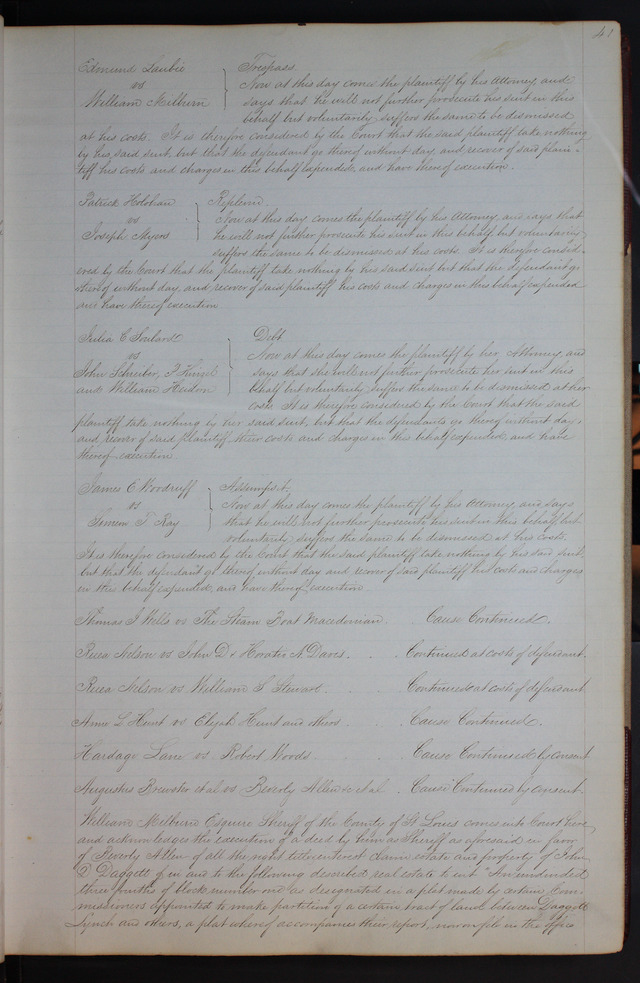 41
Edmund Laubie } Trespass
vs Now at this day comes the plaintiff by his Attorney, and
William Milburn says that he will not further prosecute his suit in this
behalf but voluntarily suffers the same to be dismissed
at his costs. It is therefore considered by the Court that the said plaintiff take nothing
by his said suit, but that the defendant go thereof without day, and recover of said plain-
tiff his costs and charges in this behalf expended, and have thereof execution.
Patrick Holohan } Replevin
vs Now at this day comes the plaintiff by his Attorney, and says that
Joseph Myers he will not further prosecute his suit in this behalf but voluntarily
suffers the same to be dismissed at his costs. It is therefore consid-
ered by the Court that the plaintiff take nothing by his said suit but that the defendant go
thereof without day, and recover of said plaintiff his costs and charges in this behalf expended
and have thereof execution
Julia C Soulard } Debt
vs Now at this day comes the plaintiff by her Attorney, and
John Schreiber, F says that she will not further prosecute her suit in this
and William behalf but voluntarily suffers the same to be dismissed at her
costs. It is therefore considered by the Court that the said
plaintiff take nothing by her said suit, but that the defendants go thereof without day,
and recover of said plaintiff their costs and charges in this behalf expended, and have
thereof execution
James C Woodruff } Assumpsit
vs Now at this day comes the plaintiff by his Attorney, and says
T Ray that he will not further prosecute his suit in this behalf, but
voluntarily suffers the same to be dismissed at his costs.
It is therefore considered by the Court that the said plaintiff take nothing by his said suit
but that the defendant go thereof without day and recover of said plaintiff his costs and charges
in this behalf expended, and have thereof execution
Thomas J Wells vs The Steam Boat Macedonian . Cause Continued.
Nelson vs John D & Horatio N Davis . . Continued at costs of defendant.
Nelson vs William S Steward . . Continued at costs of defendant
L Hunt vs Elijah Hunt and others . . Cause Continued.
Hardage Lane vs Robert Woods Cause Continued by consent
Augustus Brewster et al vs Beverly Allen et al . Cause Continued by consent.
William Milburn Esquire Sheriff of the County of St Louis comes into Court here,
and acknowledges the execution of a deed by him as Sheriff as aforesaid in favor
of Beverly Allen of all the right title interest claim estate and property of John
D Daggett of in and to the following described real estate to wit "An undivided
three fourths of block number one as designated in a plat made by certain Com-
missioners appointed to make partition of a certain tract of land between Daggett
Lynch and others, a plat whereof accompanies their report, now on file in the office